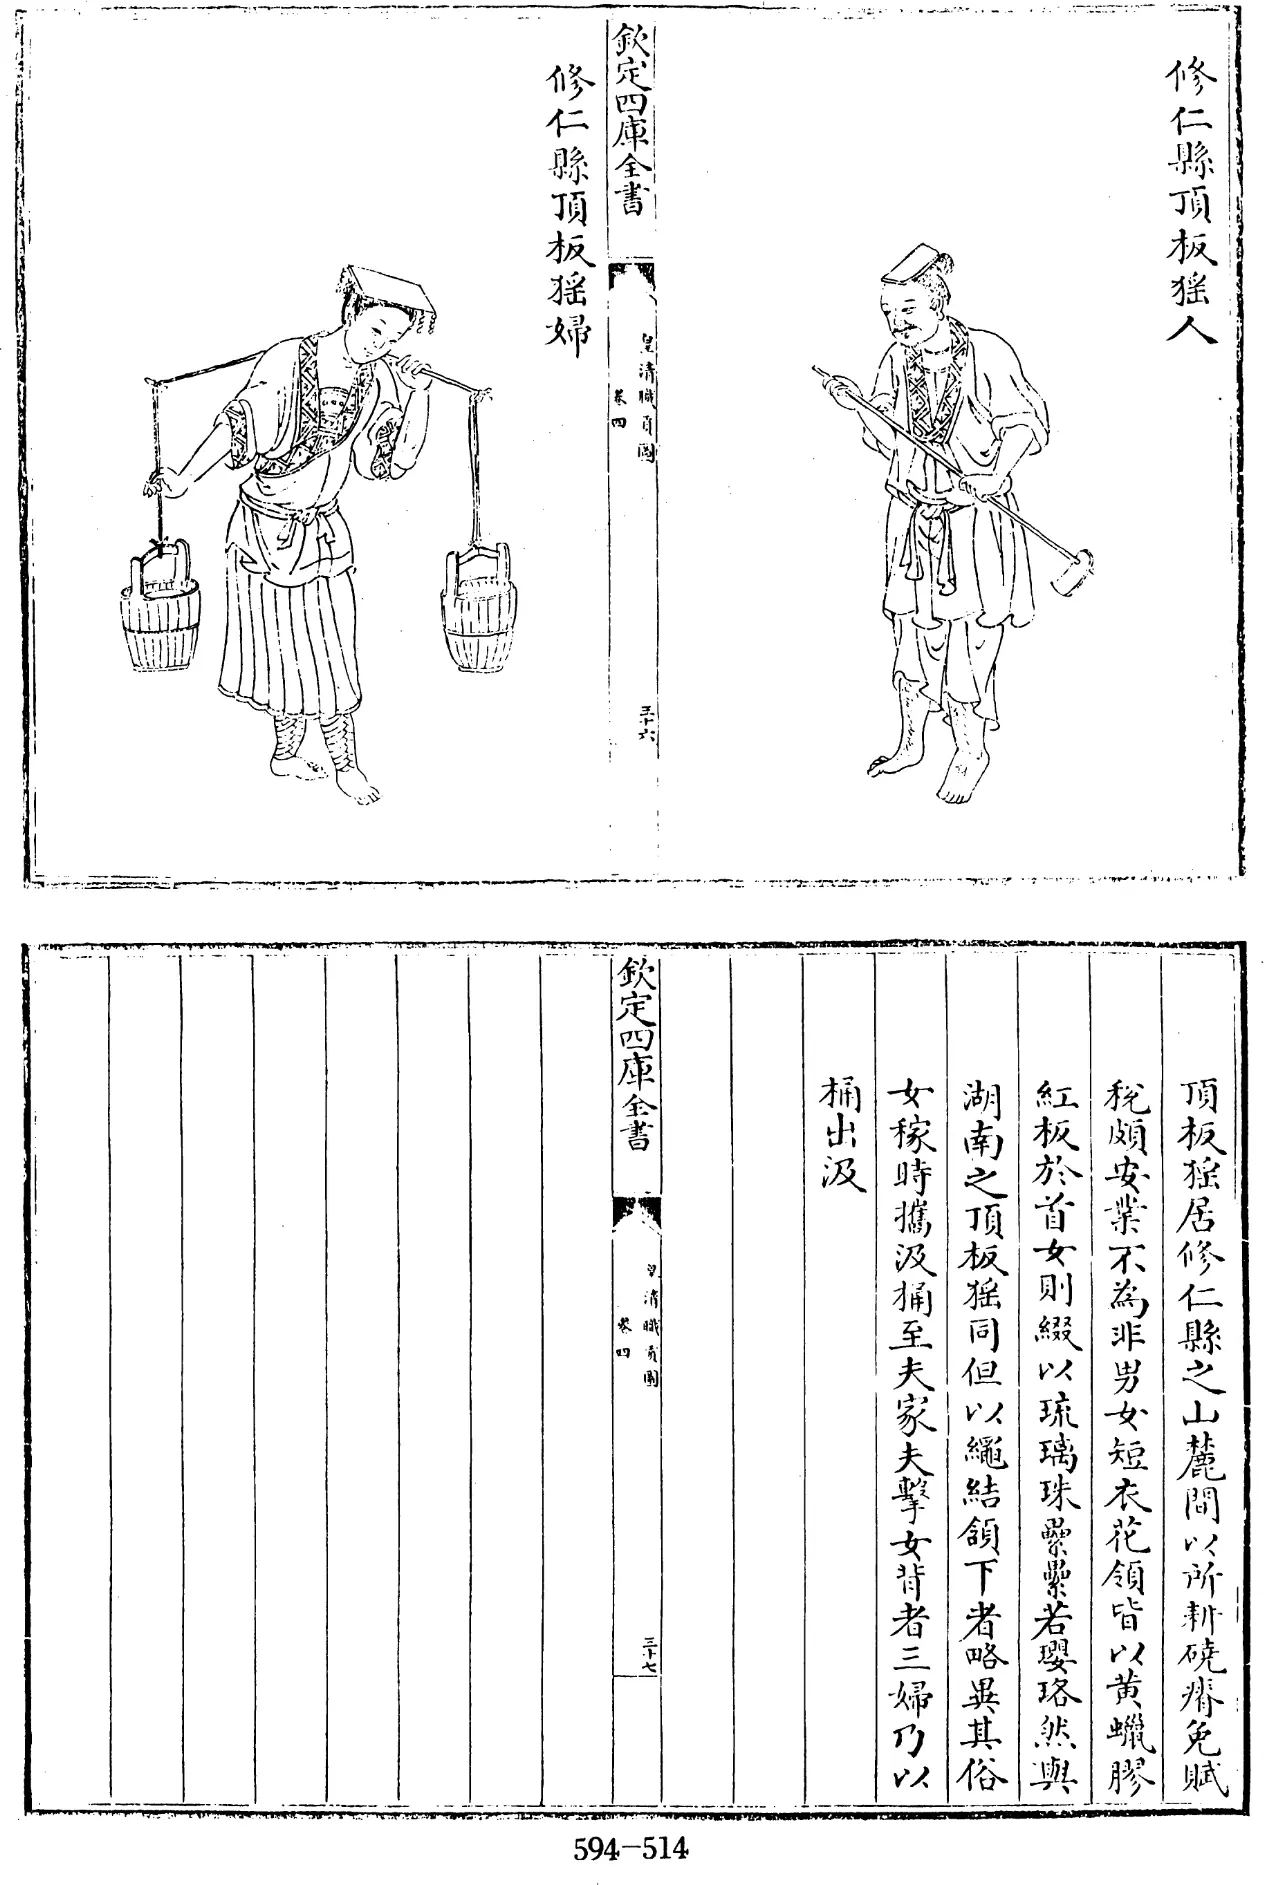 修仁縣頂板猺人
欽定四庫全書
皇清職貢圖
卷四
三十六
修仁縣頂板猺婦
頂板猺居修仁縣之山麓間以所耕磽瘠免賦
稅頗安業不為非男女短衣花領皆以黄蠟膠
紅板於首女則綴以琉璃珠纍纍若瓔珞然與
湖南之頂板猺同但以繩結頷下者略異其俗
女稼時攜汲桶至夫家夫擊女背者三婦乃以
桶出汲
欽定四庫全書
皇清職貢圖
卷四
三十七
594-514